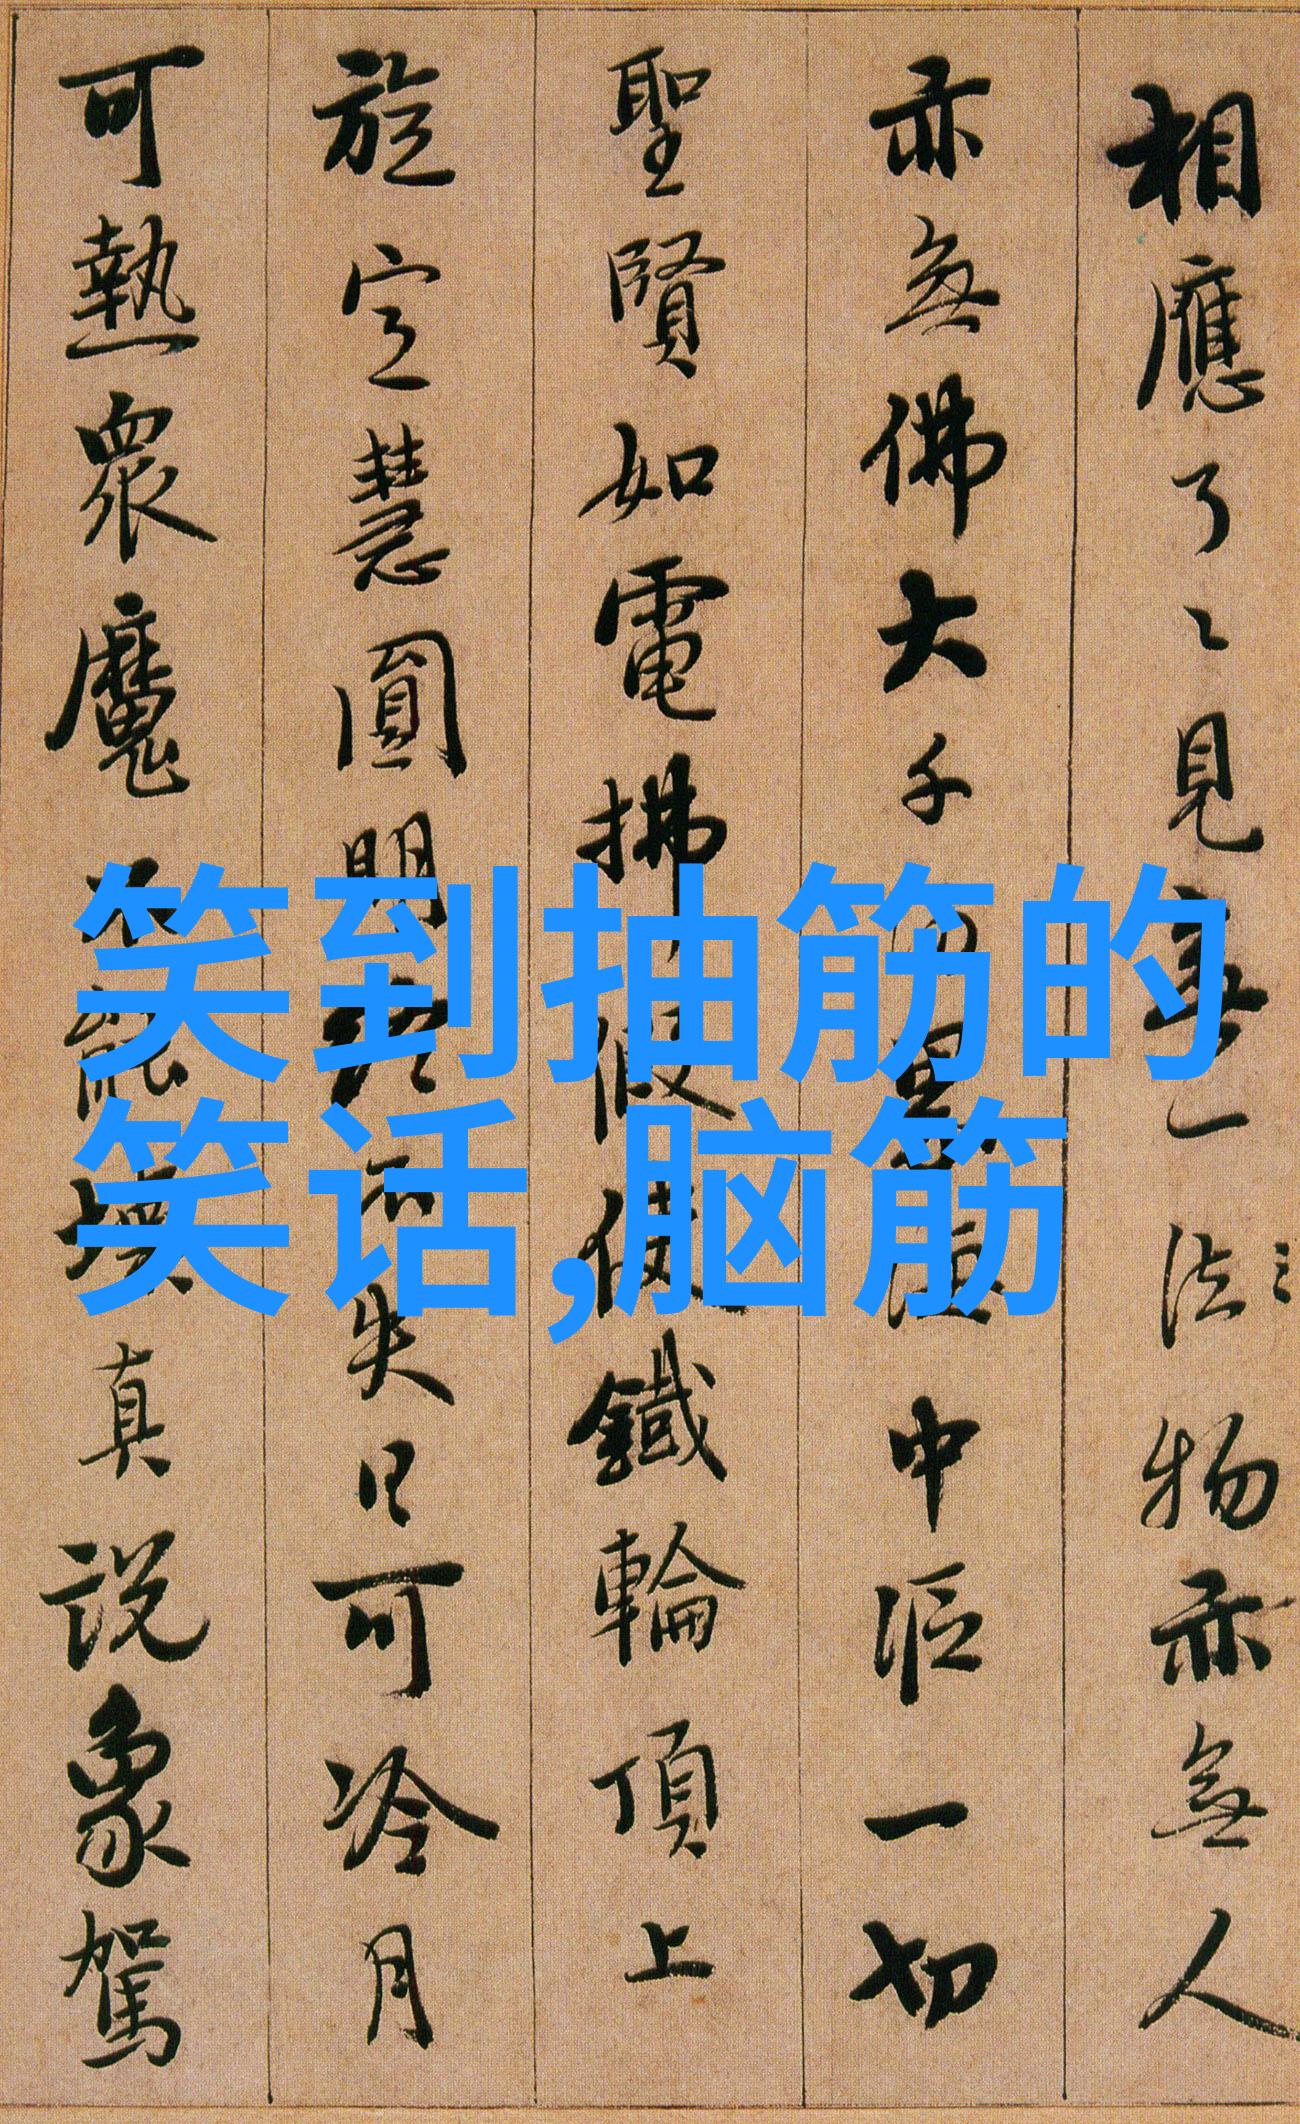 相應了〻見無一法
物亦無人
亦無佛大千
中漚一切
聖賢如電拂
假使鐵輪頂上
旋定慧圓明
不失日可冷月
可熱衆魔
能壞真說象駕
笑到抽筋的
笑话,脑筋